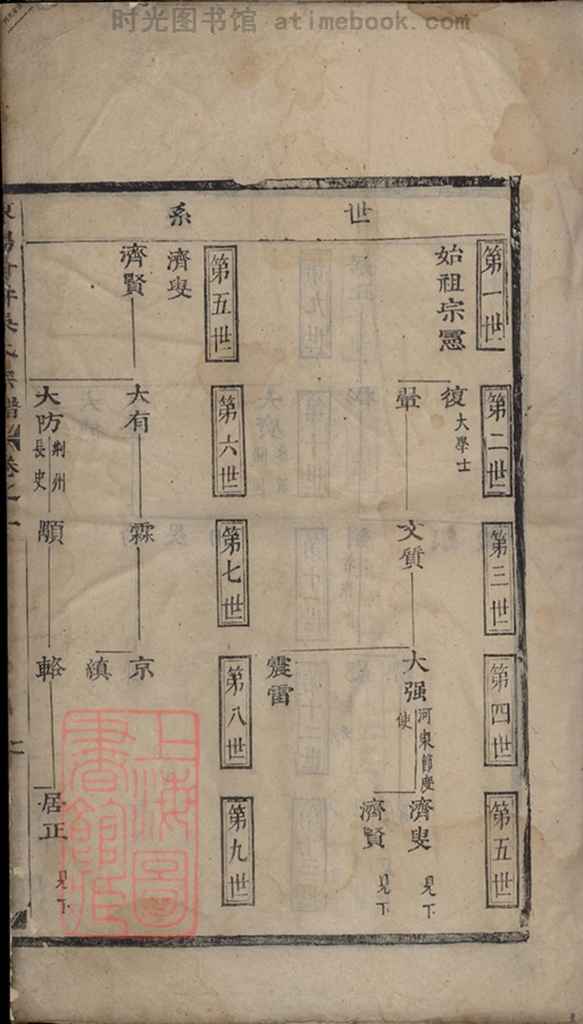 时光图书馆 atimebook.com
世系
第一世
始祖宗憲
第二世
復 大學士
壘
第三世
文質
第四世
大强 河東節度使
震雷
第五世
濟叟 見下
濟賢 見下
第五世
濟叟
濟賢
第六世
大有
大防 荆州長史
第七世
霖
顒
第八世
京
縝
輅
第九世
居正 見下
上海圖書館